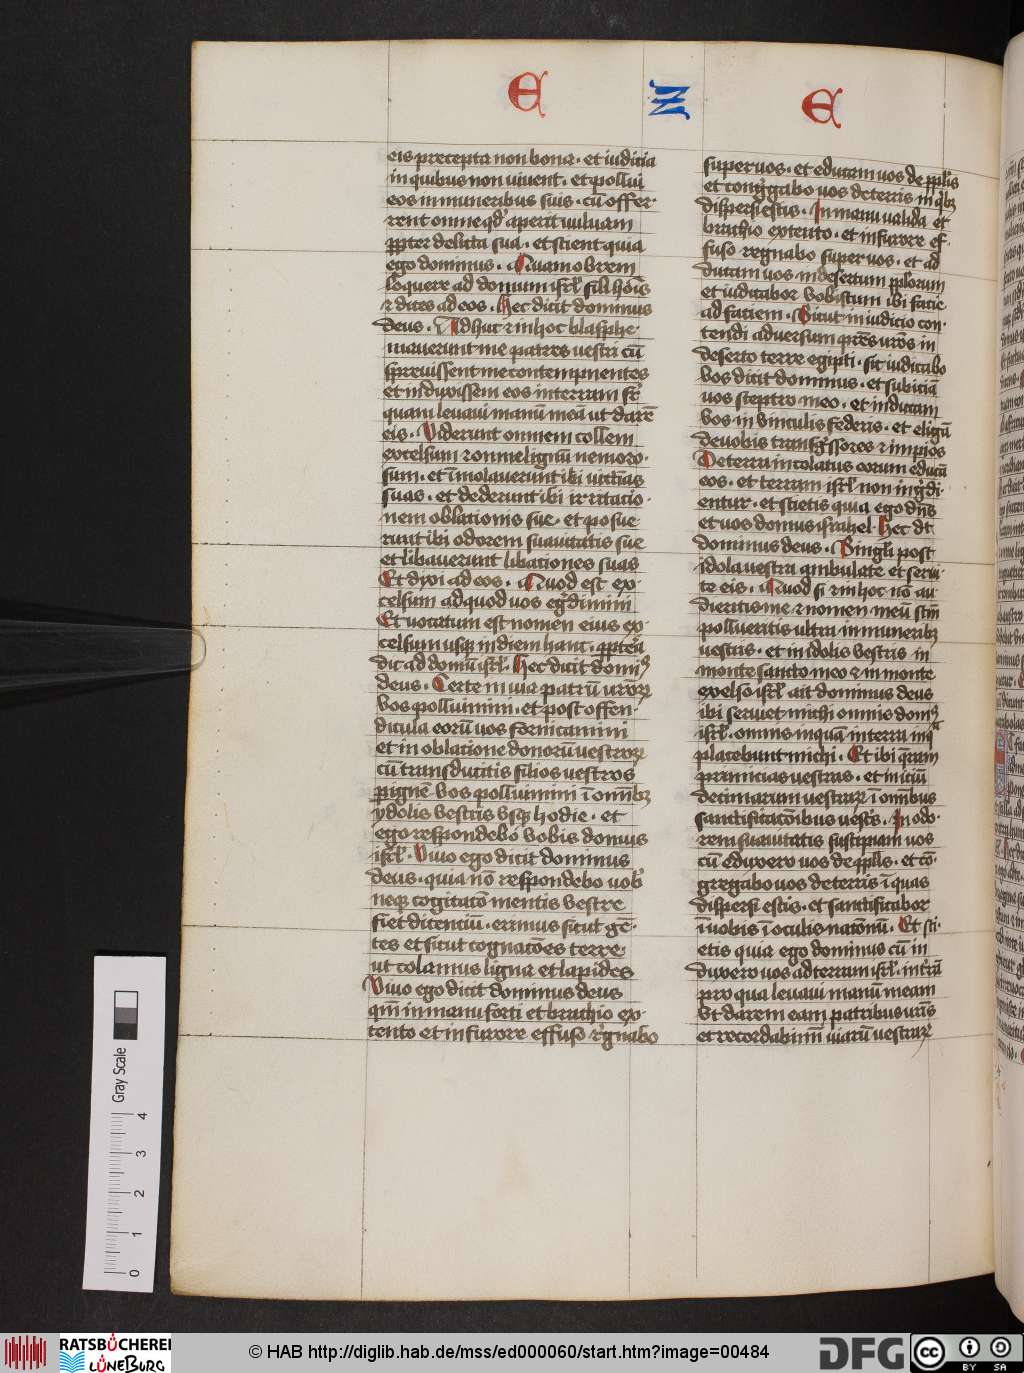 E Z E
eis precepta non bona · et iudicia
in quibus non viuent · et pollui
eos in muneribus suis · cū offer-
rent omne qd' aperit vuluam
ꝓpter delicta sua · et scient quia
ego dominus · Quamobrem
loquere ad domum isrl' fili hoīs
⁊ dices ad eos · Hec dicit dominus
deus · Adhuc ⁊ in hoc blasphe-
mauerunt me patres vestri cū
spreuissent me contempnentes
et induxissem eos in terram sr̄
quam leuaui manū meā ut darē
eis · Viderunt omnem collem
excelsum ⁊ omne lignū nemoro-
sum · et īmolauerunt ibi victīas
suas · et dederunt ibi irritatio-
nem oblationis sue · et posue
runt ibi odorem suauitatis sue
et libauerunt libationes suas
Et dixi ad eos · Quod est ex-
celsum ad quod vos egͥdimini
Et vocatum est nomen eius ex-
celsum usqꝫ in diem hanc · ꝓpterā
dic ad domū isrl' · Hec dicit domiꝰ
deus · Certe in via patrū vrōꝝ
vos polluimini · et post offen-
dicula eorū vos fornicamini
et in oblatione donorū vestroꝝ
cū transducitis filios vestros
ꝑ ignē vos polluimini ī omībꝫ
ydolis vestris vsqꝫ hodie · et
ego respondebo vobis domus
isrl' · Viuo ego dicit dominus
deus · quia nō respondebo uob'
neqꝫ cogitatō mentis vestre
fiet dicentiū · erimus sicut gē-
tes et sicut cognatōes terre ·
ut colamus ligna et lapides
Viuo ego dicit dominus deus
qm̄ in manu forti et brachio ex-
tento et in furore effuso rͤgnabo
super vos · et educam vos de ppl'is
et congͤgabo vos de terris in qͥbꝫ
dispersi estis · In manu valida et
brachio extento · et in furore ef-
fuso regnabo super vos · et ad
ducam vos in desertum ppl'orum
et iudicabor vobiscum ibi facie
ad faciem · Sicut in iudicio con-
tendi aduersum pr̄es vrōs in
deserto terre egipti · sic iudicabo
vos dicit dominus · et subiciā
vos sceptro meo · et inducam
vos in vinculis federis · et eligā
de vobis transgͥssores ⁊ impios
De terra incolatus eorum educā
eos · et terram isrl' non ingͥdi-
entur · et scietis quia ego dn̄s
et vos domus israhel · Hec dt
dominus deus · Singl'i post
idola vestra ambulate et serui-
te eis · Quod si ⁊ in hoc nō au-
dieritis me ⁊ nomen meū sc̄m
pollueritis ultra in muneribꝫ
vestris · et in idolis vestris in
monte sancto meo ⁊ in monte
excelso isrl' ait dominus deus
ibi seruiet michi omnis domꝰ
isrl' · omnis inquā in terra in qͣ
placebunt michi · Et ibi qͣram
primicias vestras · et iniciū
decimarum vestraꝝ ī omībus
sanctificatōibus vest's · In odo-
rem suauitatis suscipiam vos
cū eduxero vos de ppl'is · et cō-
gregabo vos de terris ī quas
dispersi estis · et sanctificabor
ī vobis ī oculis natōnū · Et sci-
etis quia ego dominus cū in
duxero vos ad terram isrl' · in tͥrā
pro qua leuaui manū meam
vt darem eam patribus vrīs
et recordabimī viarū vestraꝝ
Gray Scale
0 1 2 3 4
RATSBÜCHEREI
LÜNEBURG
© HAB http://diglib.hab.de/mss/ed000060/start.htm?image=00484
DFG
cc BY SA